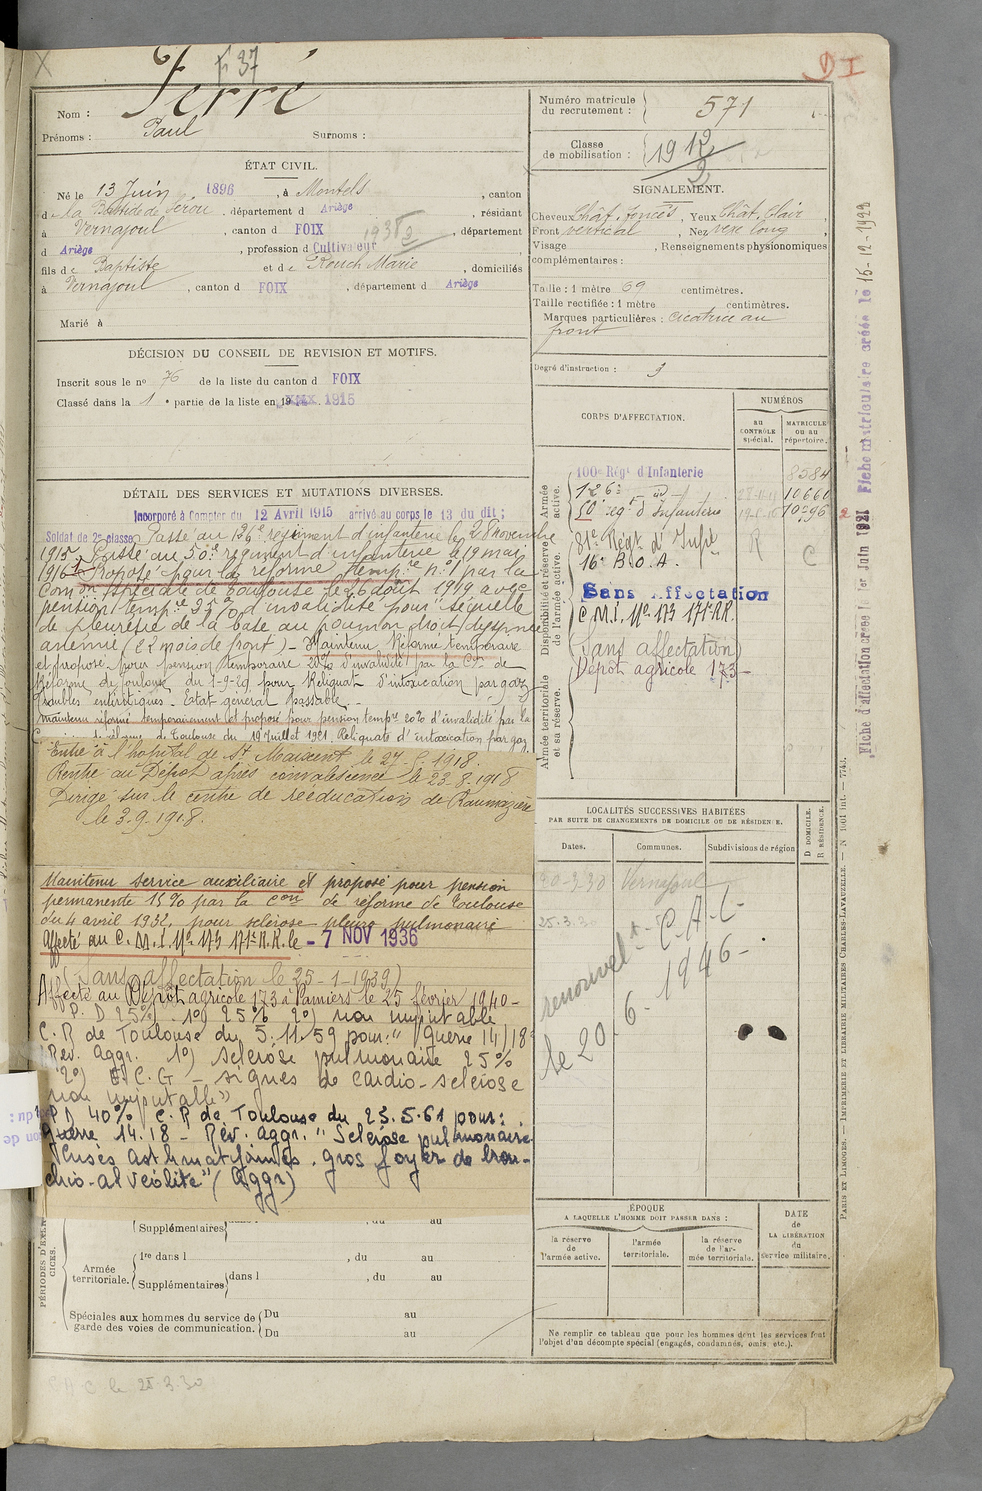 X
f 37
D I
Nom : Ferré
Prénoms : Paul Surnoms :
Numéro matricule du recrutement : 571
Classe de mobilisation : 1912/2
ÉTAT CIVIL.
Né le 13 Juin 1896, à Montels, canton
d la Bastide de Sérou, département d Ariège, résidant
à Vernajoul, canton d FOIX, département
d Ariège, profession d Cultivateur
fils de Baptiste et de Rouch Marie, domiciliés
à Vernajoul, canton d FOIX, département d Ariège
Marié à
SIGNALEMENT.
Cheveux Chât. foncés, Yeux Chât. Clair,
Front vertical, Nez long,
Visage , Renseignements physionomiques
complémentaires :
Taille : 1 mètre 69 centimètres.
Taille rectifiée : 1 mètre centimètres.
Marques particulières : cicatrice au
front
Degré d'instruction : 3
DÉCISION DU CONSEIL DE REVISION ET MOTIFS.
Inscrit sous le nº 76 de la liste du canton d FOIX
Classé dans la 1e partie de la liste en 1915
DÉTAIL DES SERVICES ET MUTATIONS DIVERSES.
Incorporé à Compter du 12 Avril 1915 arrivé au corps le 13 du dit ;
Soldat de 2e classe Passé au 126e régiment d'infanterie le 28 novembre
1915 Passé au 50e régiment d'infanterie le 19 mai
1916 Proposé pour la réforme temp.re nº 1 par la
Com.on spéciale de Toulouse le 26 août 1919 avec
pension temp.re 35% d'invalidité pour séquelle
de pleurésie de la base au poumon droit, dyspnée
anémie (22 mois de front) – Maintenu Réformé temporaire
et proposé pour pension temporaire 20% d'invalidité par la Con de
Réforme de Toulouse du 1-9-20 pour Reliquat d'intoxication par gaz
troubles entéritiques. Etat général passable
maintenu réformé temporairement et proposé pour pension tempre 20% d'invalidité par la
de réforme de Toulouse du 19 Juillet 1921. Reliquats d'intoxication par gaz
Entré à l'hopital de St Maixent le 27 1918.
Rentré au Dépôt après convalescence le 23.8.1918
Dirigé sur le centre de rééducation de
le 3.9.1918.
Maintenu service auxiliaire et proposé pour pension
permanente 15% par la Con de réforme de Toulouse
du 4 avril 1932, pour sclérose pleuro pulmonaire
Affecté au C. M. I. Nº 173 171e R.R. le – 7 NOV 1936
(Sans affectation le 25-1-1939)
Affecté au Dépôt agricole 173 à Pamiers le 25 février 1940 –
P. D 25% 1º) 25% 2º) non imputable
C. R de Toulouse du 5.11.59 pour : "(guerre 14)18
Rev. aggr. 1º) sclérose pulmonaire 25%
2º) E.C.G – signes de cardio-sclérose
non imputable"
P D 40% C. R de Toulouse du 25.5.61 pour :
guerre 14.18 – Rev. aggr. "Sclérose pulmonaire
crises asthmatiformes. gros foyer de bron-
chio-alvéolite" (Aggr)
CORPS D'AFFECTATION.
NUMÉROS
au CONTRÔLE spécial.
MATRICULE ou au répertoire.
Armée active.
100e Régt d'Infanterie 8584
126e – id – 10660
50e régt d'Infanterie 10296
Disponibilité et réserve de l'armée active.
81e Régt d'Infie R C
16e B. O. A.
Sans Affectation
C M. I. Nº 173 171e R.R.
(Sans affectation)
Dépôt agricole 173
Armée territoriale et sa réserve.
Fiche d'affectation créée le 1er Juin 1921 Fiche matriculaire créée le 15-12-1923
LOCALITÉS SUCCESSIVES HABITÉES
PAR SUITE DE CHANGEMENTS DE DOMICILE OU DE RÉSIDENCE.
D DOMICILE. R RÉSIDENCE.
Dates. Communes. Subdivisions de région
20-3-30 Vernajoul
25.3.30
renouvelt C.A.C –
le 20.6.1946 –
PÉRIODES D'EXERCICES.
Supplémentaires , du au
Armée territoriale.
1re dans l , du au
Supplémentaires dans l , du au
Spéciales aux hommes du service de garde des voies de communication.
Du au
Du au
ÉPOQUE
A LAQUELLE L'HOMME DOIT PASSER DANS :
la réserve de l'armée active.
l'armée territoriale.
la réserve de l'armée territoriale.
DATE de LA LIBÉRATION du service militaire.
Ne remplir ce tableau que pour les hommes dont les services font
l'objet d'un décompte spécial (engagés, condamnés, omis, etc.).
PARIS ET LIMOGES. — IMPRIMERIE ET LIBRAIRIE MILITAIRES CHARLES-LAVAUZELLE. — N 1001 int. — 7743.
C le 25.3.30